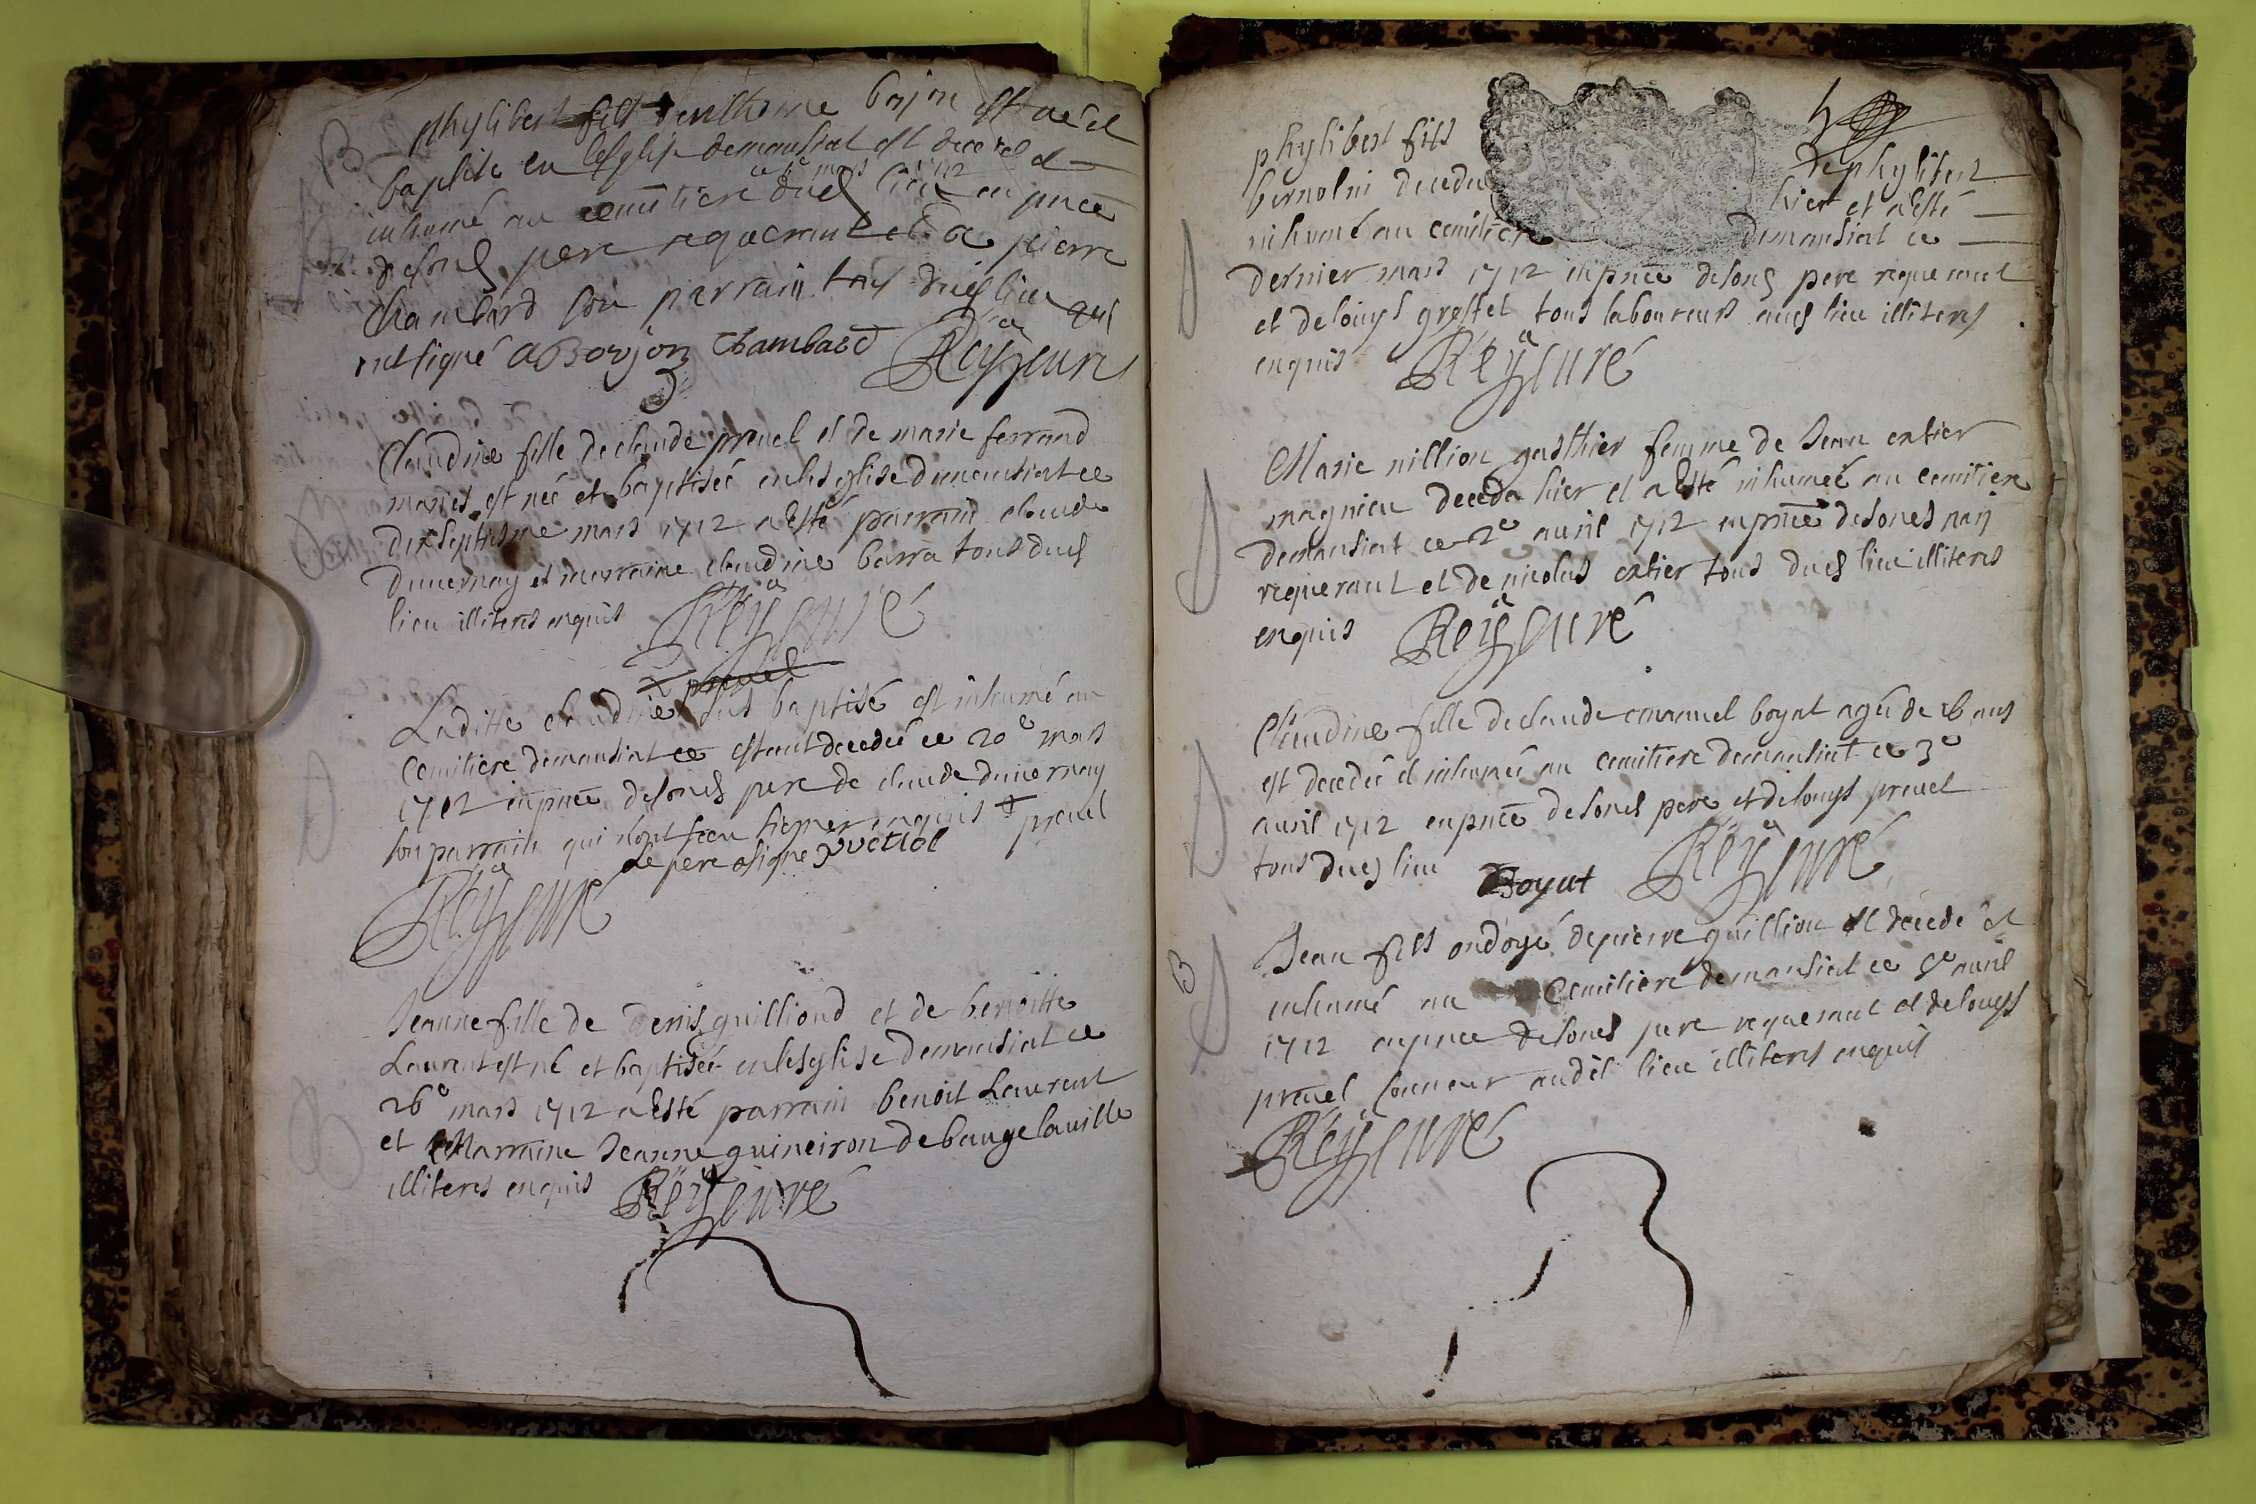 phylibert fils danthoine bojon est né et
baptisé en lesglise demansiat est decedé et
ce 6e mars 1712
inhumé au cemitiere dud lieu en pnce
desond pere requerant et de pierre
chambard son parrain tous dud lieu qui
ont signé ABoujon Chambard Rey curé
Claudine fille de claude preuel et de marie ferrand
mariés est née et baptisée en lesglise demansiat ce
dixseptiesme mars 1712 a esté parrain claude
duuernay et marraine claudine barra tous dud
lieu illiteres enquis Rey curé
preuel
Laditte claudine sus baptisé est inhumé au
Cemitiere demansiat ce estant decedée ce 20e mars
1712 en pnce desond pere de claude duuernay
son parrain qui nont sceu signer enquis + preuel
le pere a signé
Rey curé
Jeanne fille de denis guilliond et de benoitte
Laurent est né et baptisée en lesglise demansiat ce
26e mars 1712 a esté parrain benoit Laurent
et Marraine Jeanne guineiron de bauge la ville
illiteres enquis Rey curé
phylibert fils de phylibert
bernolin decedu hier et a esté
inhumé au cemitiere demansiat ce
dernier mars 1712 en pnce desond pere requerant
et de louys groffet tous laboureurs aud lieu illiteres
enquis Rey curé
Marie million gasthier femme de Jean
magnieu deceda hier et a esté inhumeé au cemitiere
demansiat ce 2e auril 1712 en pnce desond mary
requerant et de nicolas tous dud lieu illiteres
enquis Rey curé
Claudine fille de claude emanuel boyat ageé de 26 ans
est decedée et inhumée au cemitiere demansiat ce 3e
auril 1712 en pnce desond pere et de louys preuel
tous dud lieu Boyat Rey curé
Jean fils ondoyé de pierre guillion est decedé et
inhumé au Cemitiere demansiat ce 9e auril
1712 en pnce desond pere requerant et de louys
preuel sonneur audit lieu illiteres enquis
Rey curé